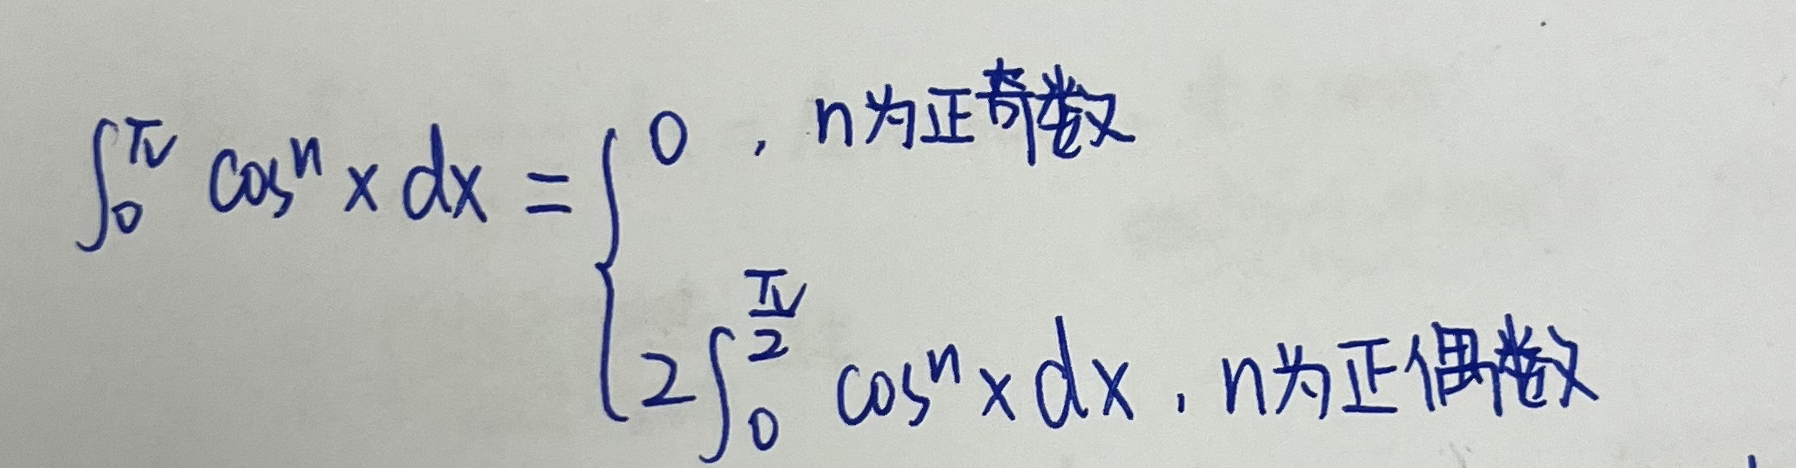 ∫₀^π cosⁿ x dx = { 0 , n为正奇数
2∫₀^(π/2) cosⁿ x dx , n为正偶数